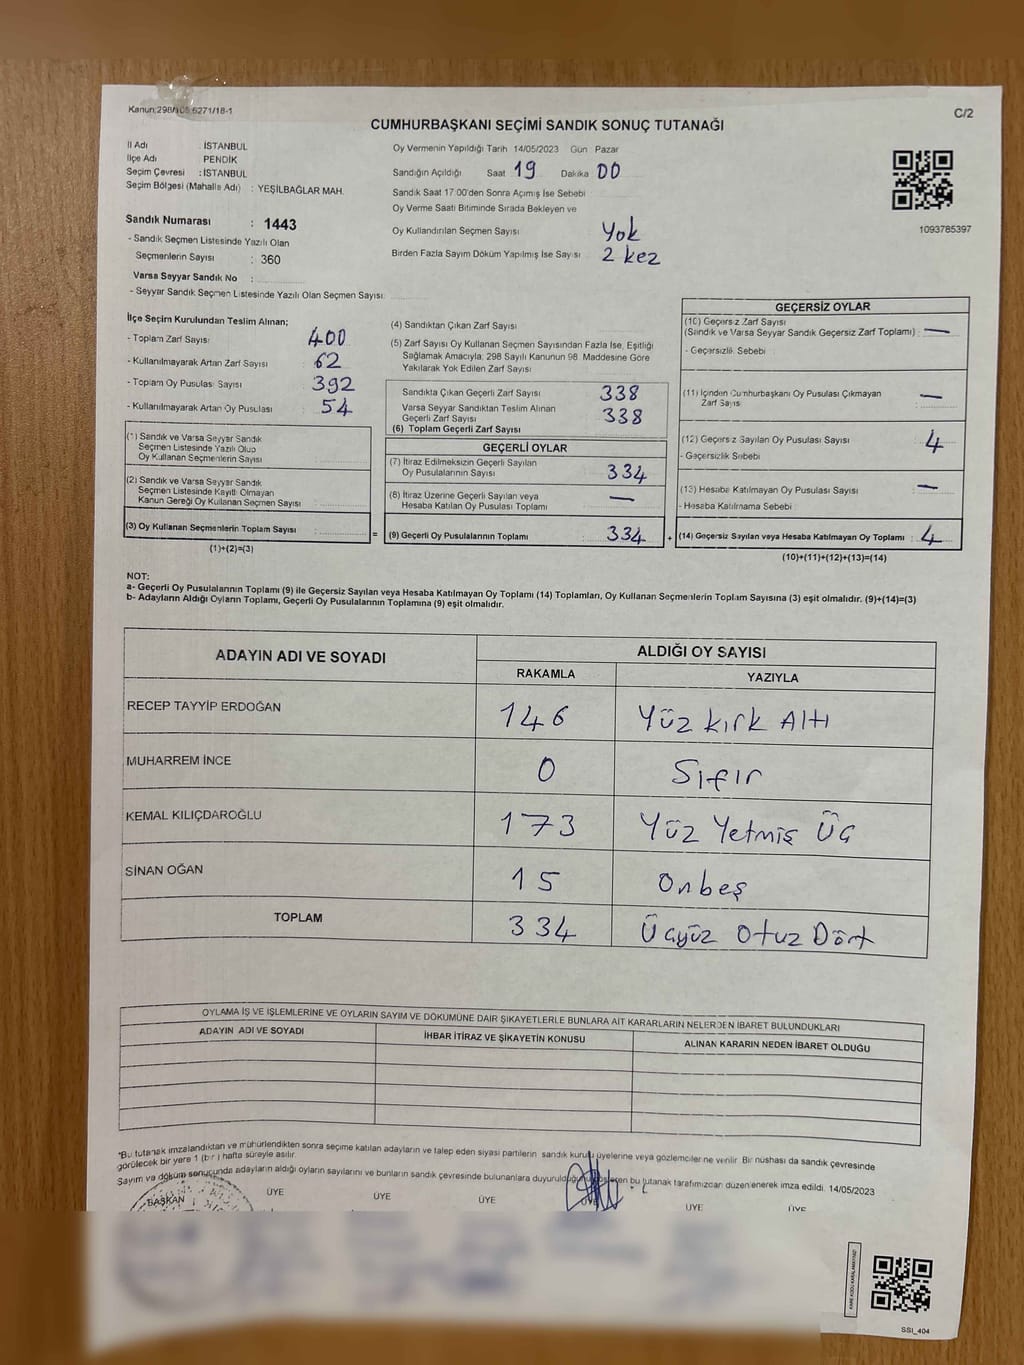 Kanun:298/105 6271/18-1
C/2
CUMHURBAŞKANI SEÇİMİ SANDIK SONUÇ TUTANAĞI
İl Adı : İSTANBUL
İlçe Adı PENDİK
Seçim Çevresi : İSTANBUL
Seçim Bölgesi (Mahalle Adı) : YEŞİLBAĞLAR MAH.
Sandık Numarası : 1443
- Sandık Seçmen Listesinde Yazılı Olan
Seçmenlerin Sayısı : 360
Varsa Seyyar Sandık No :
- Seyyar Sandık Seçmen Listesinde Yazılı Olan Seçmen Sayısı
Oy Vermenin Yapıldığı Tarih 14/05/2023 Gün Pazar
Sandığın Açıldığı Saat 19 Dakika 00
Sandık Saat 17.00'den Sonra Açımış İse Sebebi
Oy Verme Saati Bitiminde Sırada Bekleyen ve
Oy Kullandırılan Seçmen Sayısı Yok
Birden Fazla Sayım Döküm Yapılmış İse Sayısı 2 kez
1093785397
İlçe Seçim Kurulundan Teslim Alınan;
- Toplam Zarf Sayısı 400
- Kullanılmayarak Artan Zarf Sayısı 62
- Toplam Oy Pusulası Sayısı 392
- Kullanılmayarak Artan Oy Pusulası 54
(1) Sandık ve Varsa Seyyar Sandık
Seçmen Listesinde Yazılı Olup
Oy Kullanan Seçmenlerin Sayısı
(2) Sandık ve Varsa Seyyar Sandık
Seçmen Listesinde Kayıtlı Olmayan
Kanun Gereği Oy Kullanan Seçmen Sayısı
(3) Oy Kullanan Seçmenlerin Toplam Sayısı :
=
(1)+(2)=(3)
(4) Sandıktan Çıkan Zarf Sayısı
(5) Zarf Sayısı Oy Kullanan Seçmen Sayısından Fazla İse, Eşitliği
Sağlamak Amacıyla, 298 Sayılı Kanunun 98. Maddesine Göre
Yakılarak Yok Edilen Zarf Sayısı
Sandıkta Çıkan Geçerli Zarf Sayısı 338
Varsa Seyyar Sandıktan Teslim Alınan
Geçerli Zarf Sayısı 338
(6) Toplam Geçerli Zarf Sayısı
GEÇERLİ OYLAR
(7) İtiraz Edilmeksizin Geçerli Sayılan
Oy Pusulalarının Sayısı 334
(8) İtiraz Üzerine Geçerli Sayılan veya
Hesaba Katılan Oy Pusulası Toplamı —
(9) Geçerli Oy Pusulalarının Toplamı 334
+
GEÇERSİZ OYLAR
(10) Geçersiz Zarf Sayısı
(Sandık ve Varsa Seyyar Sandık Geçersiz Zarf Toplamı) : —
- Geçersizlik Sebebi
(11) İçinden Cumhurbaşkanı Oy Pusulası Çıkmayan
Zarf Sayısı —
(12) Geçersiz Sayılan Oy Pusulası Sayısı 4
- Geçersizlik Sebebi
(13) Hesaba Katılmayan Oy Pusulası Sayısı —
- Hesaba Katılmama Sebebi
(14) Geçersiz Sayılan veya Hesaba Katılmayan Oy Toplamı : 4
(10)+(11)+(12)+(13)=(14)
NOT:
a- Geçerli Oy Pusulalarının Toplamı (9) ile Geçersiz Sayılan veya Hesaba Katılmayan Oy Toplamı (14) Toplamları, Oy Kullanan Seçmenlerin Toplam Sayısına (3) eşit olmalıdır. (9)+(14)=(3)
b- Adayların Aldığı Oyların Toplamı, Geçerli Oy Pusulalarının Toplamına (9) eşit olmalıdır.
ADAYIN ADI VE SOYADI
ALDIĞI OY SAYISI
RAKAMLA YAZIYLA
RECEP TAYYİP ERDOĞAN 146 Yüz Kırk Altı
MUHARREM İNCE 0 Sıfır
KEMAL KILIÇDAROĞLU 173 Yüz Yetmiş Üç
SİNAN OĞAN 15 Onbeş
TOPLAM 334 Üçyüz Otuz Dört
OYLAMA İŞ VE İŞLEMLERİNE VE OYLARIN SAYIM VE DÖKÜMÜNE DAİR ŞİKAYETLERLE BUNLARA AİT KARARLARIN NELERDEN İBARET BULUNDUKLARI
ADAYIN ADI VE SOYADI İHBAR İTİRAZ VE ŞİKAYETİN KONUSU ALINAN KARARIN NEDEN İBARET OLDUĞU
*Bu tutanak imzalandıktan ve mühürlendikten sonra seçime katılan adayların ve talep eden siyasi partilerin sandık kurulu üyelerine veya gözlemcilerine verilir. Bir nüshası da sandık çevresinde
görülecek bir yere 1 (bir) hafta süreyle asılır.
Sayım ve döküm sonucunda adayların aldığı oyların sayılarını ve bunların sandık çevresinde bulunanlara duyurulduğunu gösteren bu tutanak tarafımızdan düzenlenerek imza edildi. 14/05/2023
BAŞKAN ÜYE ÜYE ÜYE ÜYE ÜYE ÜYE
SSI_404